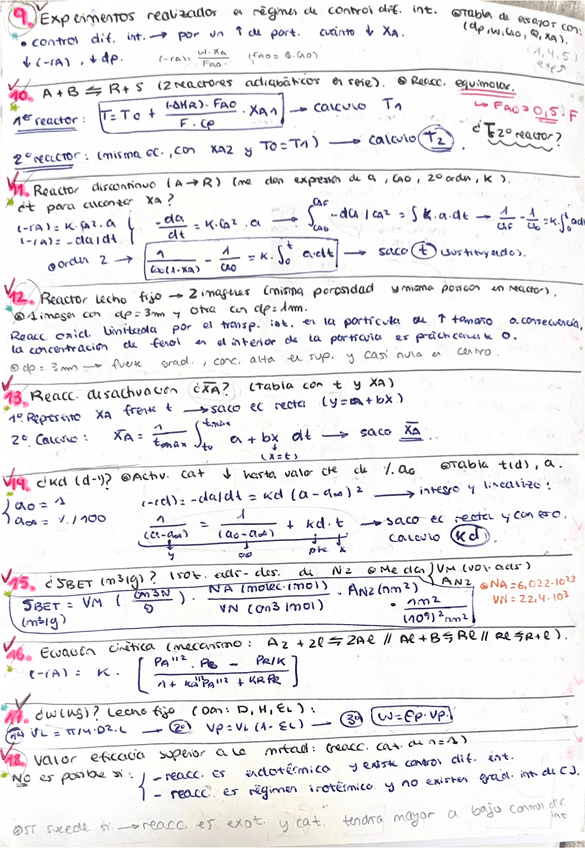 9. Experimentos realizados en régimen de control dif. int. Tabla de ensayos con:
(dp, w, CAO, Q, XA).
• control dif. int. → por un ↑ de part. cuánto ↓ XA.
↓(-rA), ↓dp. (-rA) = W·XA / FAO (FAO = Q·CAO)
(1,4,5)
10. A + B ⇆ R + S (2 reactores adiabáticos en serie). Reacc. equimolar.
↪ FAO = 0,5·F
1er reactor: T = T0 + (-ΔHR)·FAO / F·Cp · XA1 → calculo T1
¿T 2º reactor?
2º reactor: (misma ec., con XA2 y T0 = T1) → calculo T2
11. Reactor discontinuo (A → R) (me dan expresión de a, CAO, 2º orden, K).
¿t para alcanzar XA?
(-rA) = K·CA²·a
(-rA) = -dCA/dt
-dCA/dt = K·CA²·a → ∫ CAO CAF -dCA/CA² = ∫K·a·dt → 1/CAF - 1/CAO = K·∫ 0 t a dt
orden 2 → 1/CAO(1-XA) - 1/CAO = K·∫ 0 t a·dt → saco t sustituyendo.
12. Reactor lecho fijo → 2 imágenes (misma porosidad y misma posición en reactor).
1 imagen con dp = 3mm y otra con dp = 1mm.
Reacc. oxid. limitada por el transp. int. en la partícula de ↑ tamaño a consecuencia,
la concentración de fenol en el interior de la partícula es prácticamente 0.
dp = 3mm → fuerte grad., conc. alta en sup. y casi nula en centro.
13. Reacc. desactivación ¿X̄A? (tabla con t y XA)
1º Represento XA frente t → saco ec recta (y = a + bx)
2º Calculo: X̄A = 1/tmáx ∫ t0 tmáx a + bx dt → saco X̄A.
(x=t)
14. ¿Kd (d-1)? Activ. cat ↓ hasta valor cte de % a0 Tabla t(d), a.
a0 = 1
a∞ = %/100
(-rd) = -da/dt = kd (a - a∞)² → integro y linealizo:
1/(a-a∞) = 1/(a0-a∞) + kd·t → saco ec recta y con eso.
calculo kd.
y oo pte x
15. ¿SBET (m²/g)? Isot. ads-des. de N2 Me dan VM (vol. ads)
AN2
NA = 6,022·10²³
VN = 22,4·10³
SBET = VM (cm3N/g) · NA (molec/mol) / VN (cm3/mol) · AN2 (nm²) · m² / (10⁹)² nm²
(m²/g)
16. Ecuación cinética (mecanismo: A2 + 2l ⇆ 2Al // Al + B ⇆ Rl // Rl ⇆ R + l).
(-rA) = K· [ PA^1/2 · PB - PR/K / 1 + KA^1/2 PA^1/2 + KR PR ]
17. ¿W(kg)? Lecho fijo (Dan: D, H, εL):
1º VL = π/4·D²·L → 2º VP = VL (1-εL) → 3º W = ρp·VP.
18. Valor eficacia superior a la mitad: (reacc. cat. de n=1)
NO es posible si: - reacc. es endotérmica y existe control dif. int.
- reacc. es régimen isotérmico y no existen grad. int de C).
Sí sucede si → reacc. es exot. y cat. tendrá mayor a bajo control dif. int